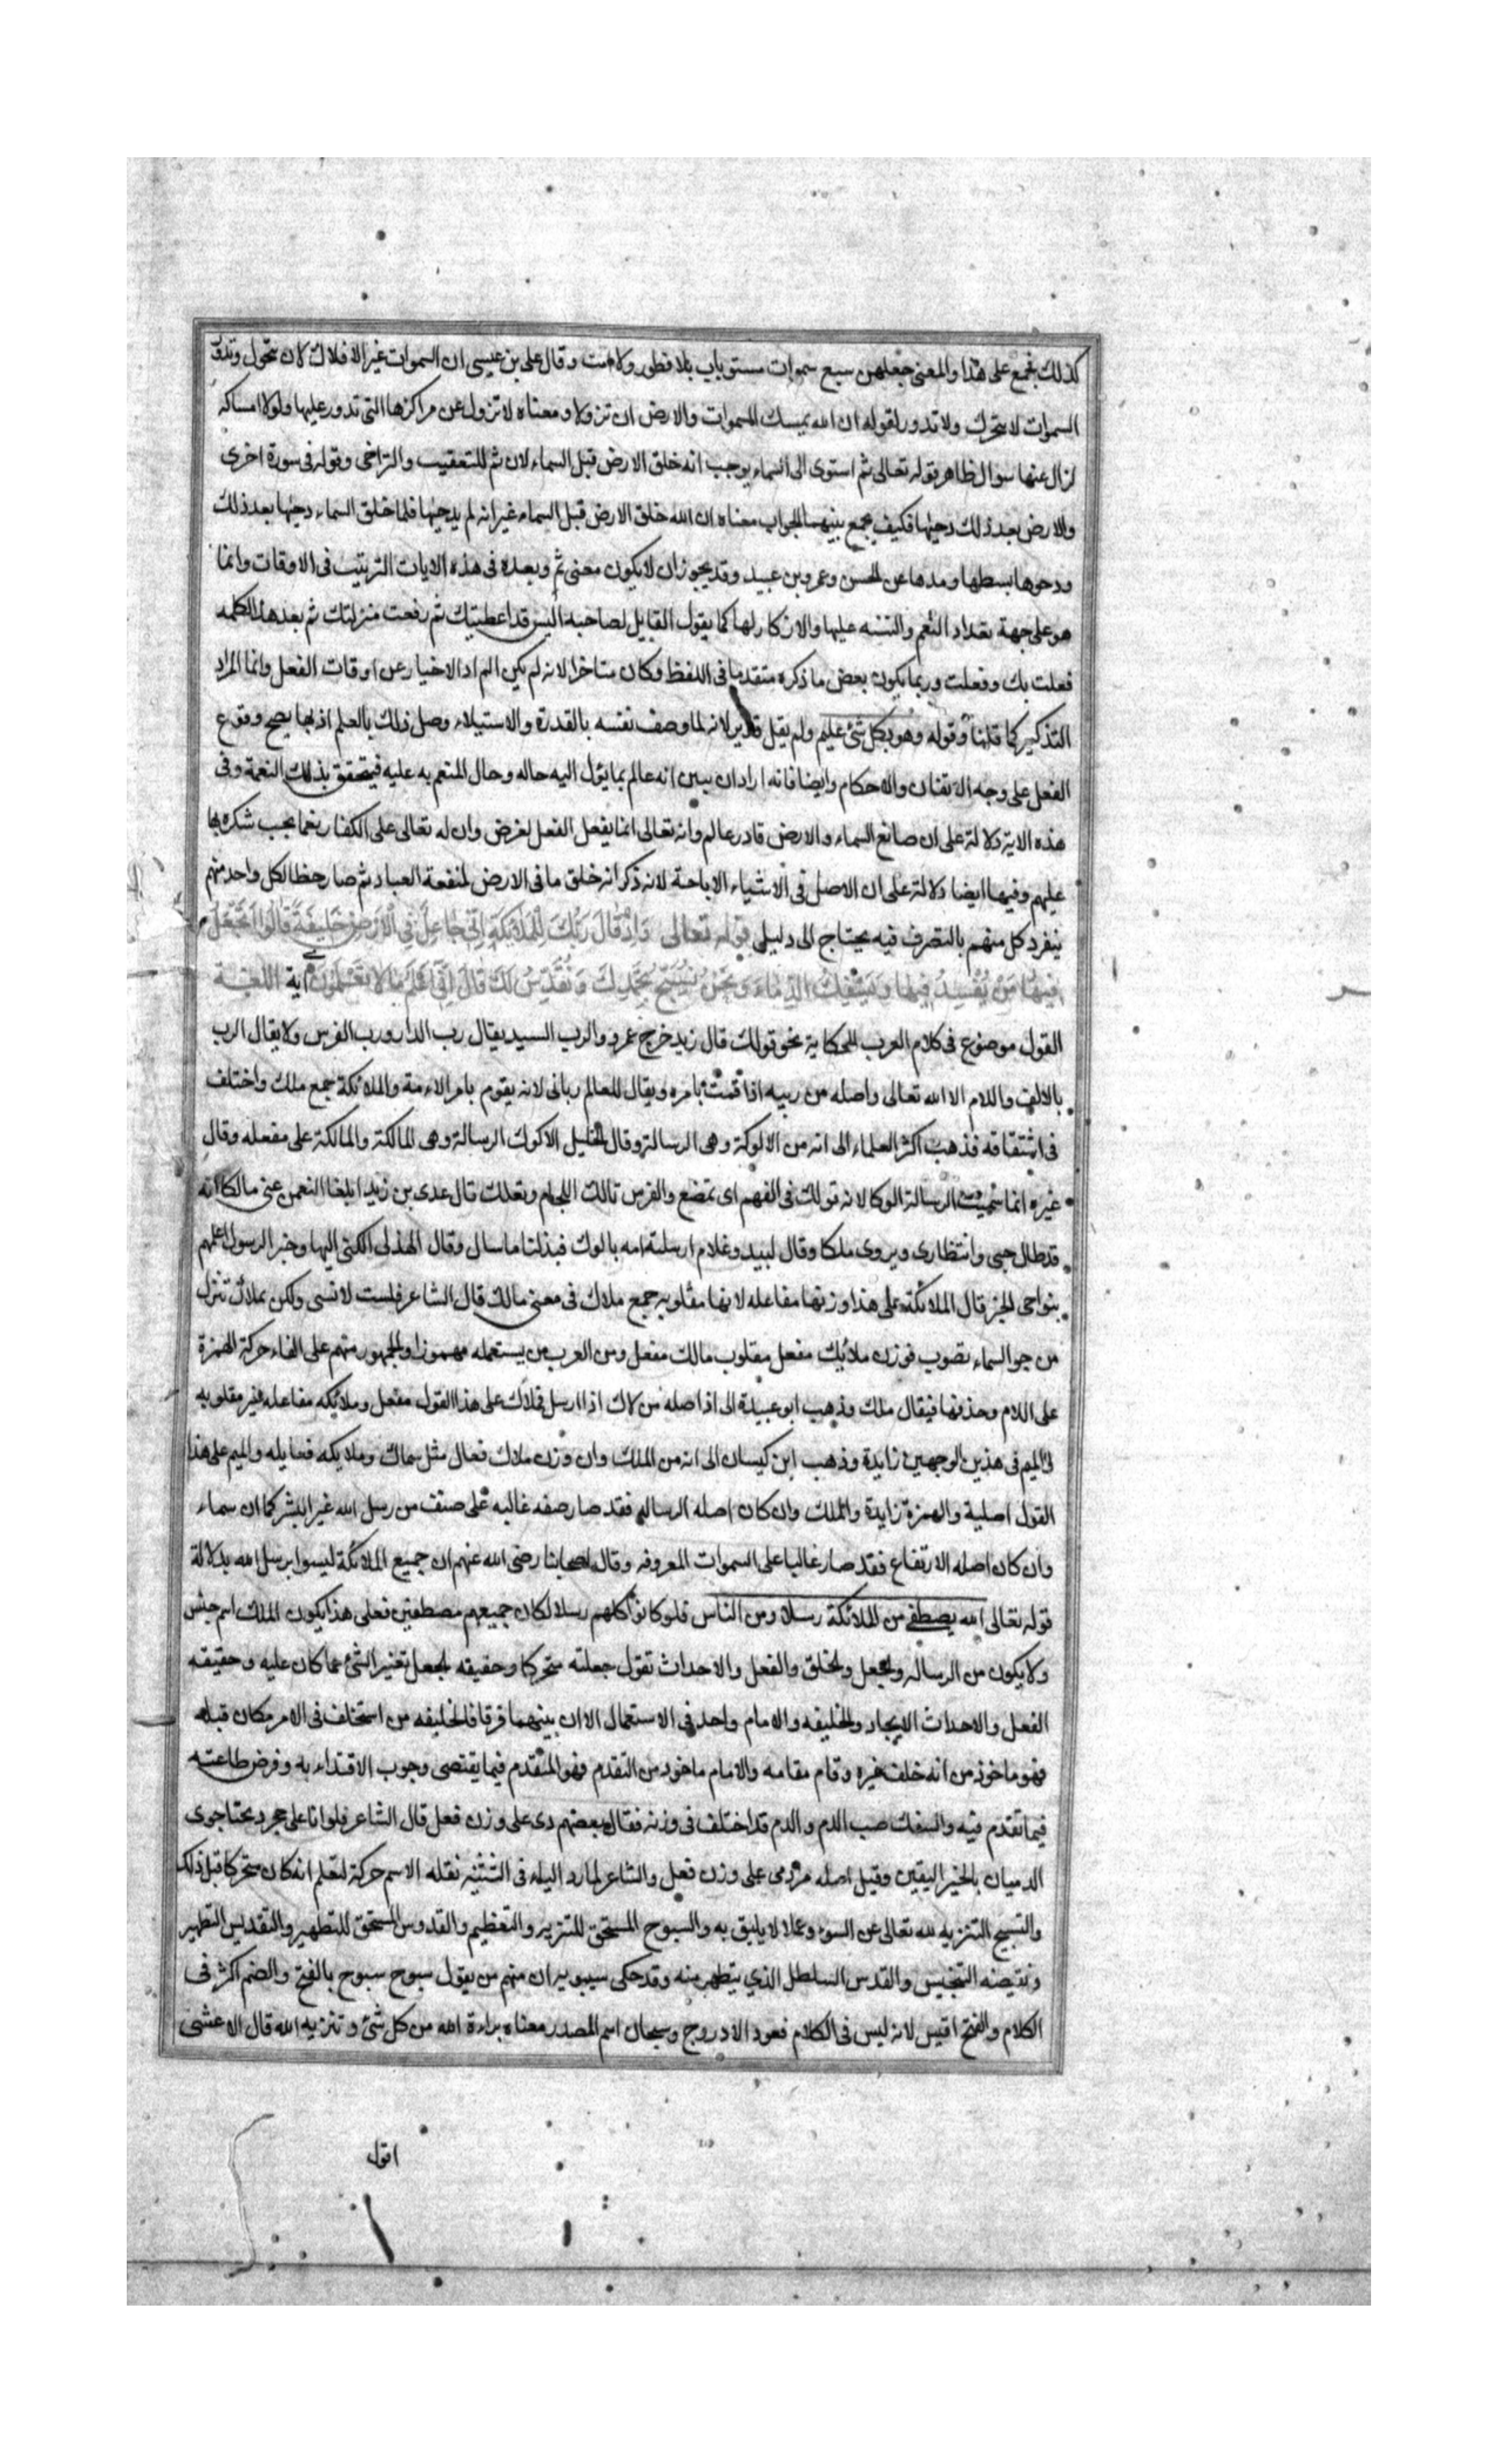 كذلك فجمع على هذا والمعنى جعلهن سبع سموات مستويات بلا فطور ولا امت وقال على بن عيسى ان السموات غير الافلاك لان تتحرك وتدور
السموات لا تتحرك ولا تدور لقوله ان الله يمسك السموات والارض ان تزولا ومعناه لا تزول عن مراكزها التى تدور عليها ولولا امساكه
لزال عنها سوال ظاهر قوله تعالى ثم استوى الى السماء يوجب انه خلق الارض قبل السماء لان ثم للتعقيب والتراخى وقوله فى سورة اخرى
والارض بعد ذلك دحيها فكيف يجمع بينهما الجواب معناه ان الله خلق الارض قبل السماء غير انه لم يدحيها فلما خلق السماء دحيها بعد ذلك
ودحوها بسطها ومدها عن الحسن وعمرو بن عبيد وقد يجوز ان لا يكون معنى ثم وبعد فى هذه الايات الترتيب فى الاوقات وانما
هو على جهة تعداد النعم والتنبيه عليها والاذكار لها كما يقول القايل لصاحبه اليس قد اعطيتك ثم رفعت منزلتك ثم بعد هذا الكلمه
فعلت بك وفعلت وربما يكون بعض ما ذكره متقدما فى اللفظ وكان متاخرا لانه لم يكن المراد الاخبار عن اوقات الفعل وانما المراد
التذكير كما قلنا وقوله وهو بكل شئ عليم ولم يقل قدير لانه لما وصف نفسه بالقدرة والاستيلاء وصل ذلك بالعلم اذ بهما يصح وقوع
الفعل على وجه الاتقان والاحكام وايضا فانه اراد ان يبين انه عالم بما يئول اليه حاله وحال المنعم به عليه فيتحقق بذلك النعمة وفى
هذه الاية دلالة على ان صانع السماء والارض قادر عالم وانه تعالى انما يفعل الفعل لغرض وان له تعالى على الكفار نعما يجب شكره بها
عليهم وفيها ايضا دلالة على ان الاصل فى الاشياء الاباحة لانه ذكر انه خلق ما فى الارض لمنفعة العباد ثم صار حظا لكل واحد منهم
ينفرد كل منهم بالتصرف فيه يحتاج الى دليل قوله تعالى وَاِذْ قَالَ رَبُّكَ لِلْمَلائِكَةِ اِنّى جَاعِلٌ فِى الْاَرْضِ خَلِيفَةً قَالُوا اَتَجْعَلُ
فِيهَا مَنْ يُفْسِدُ فِيهَا وَيَسْفِكُ الدِّمَاءَ وَنَحْنُ نُسَبِّحُ بِحَمْدِكَ وَنُقَدِّسُ لَكَ قَالَ اِنّى اَعْلَمُ مَا لَا تَعْلَمُونَ اية اللغة
القول موضوع فى كلام العرب للحكاية نحو قولك قال زيد خرج عمرو والرب السيد يقال رب الدار ورب الفرس ولا يقال الرب
بالالف واللام الا الله تعالى واصله من ربيه اذا قمت بامره ويقال للعالم ربانى لانه يقوم بامر الامة والملائكة جمع ملك واختلف
فى اشتقاقه فذهب اكثر العلماء الى انه من الالوكة وهى الرسالة وقال الخليل الالوك الرسالة وهى المالكة والمالكة على مفعله وقال
غيره انما سميت الرسالة الوكا لانه تولك فى الفهم اى تمضع والفرس تالك اللجام وتعلك قال عدى بن زيد ابلغا النعمن عنى مالكا انه
قد طال حبسى وانتظارى ويروى ملكا وقال لبيد وغلام ارسلته امه بالوك فبذلنا ما سال وقال الهذلى الكنى اليها وخير الرسول اعلمهم
بنواحى الخبر قال الملائكة على هذا وزنها مفاعله لانها مقلوبه جمع ملاك فى معنى مالك قال الشاعر فلست لانسى ولكن بملاك تنزل
من جو السماء يصوب فوزن ملائك مفعل مقلوب مالك مفعل ومن العرب من يستعمله مهموزا والجمهور منهم على القاء حركة الهمزة
على اللام وحذفها فيقال ملك وذهب ابو عبيدة الى اذ اصله من لاك اذا ارسل فملاك على هذا القول مفعل وملائكه مفاعله غير مقلوبه
والميم فى هذين الوجهين زايدة وذهب ابن كيسان الى انه من الملك وان وزن ملاك فعال مثل سماك وملايكه فعايله والميم على هذا
القول اصلية والهمزة زايدة والملك وان كان اصله الرساله فقد صار صفه غالبه على صنف من رسل الله غير البشر كما ان سماء
وان كان اصله الارتفاع فقد صار غالبا على السموات المعروفه وقال اصحابنا رضى الله عنهم ان جميع الملائكة ليسوا برسل الله بدلالة
قوله تعالى الله يصطفى من الملائكة رسلا ومن الناس فلو كانوا كلهم رسلا لكان جميعهم مصطفين فعلى هذا يكون الملك اسم جنس
ولا يكون من الرساله والجعل والخلق والفعل والاحداث تقول جعلته متحركا وحقيقه الجعل تغير الشئ عما كان عليه وحقيقه
الفعل والاحداث الايجاد والخليفه والامام واحد فى الاستعمال الا ان بينهما فرقا فالخليفه من استخلف فى الامر مكان قبله
فهو ماخوذ من انه خلف غيره وقام مقامه والامام ماخوذ من التقدم فهو المتقدم فيما يقتضى وجوب الاقتداء به وفرض طاعته
فيما تقدم فيه والسفك صب الدم والدم قد اختلف فى وزنه فقال بعضهم دمى على وزن فعل قال الشاعر فلو انا على حجر ذبحنا جرى
الدميان بالخبر اليقين وقيل اصله دمى على وزن فعل والشاعر لما رد الياء فى التثنيه نقله الاسم حركة لتعلم انه كان متحركا قبل ذلك
والتسبيح التنزيه لله تعالى عن السوء وعما لا يليق به والسبوح المستحق للتنزيه والتعظيم والقدوس المستحق للتطهير والتقديس التطهير
ونقيضه التنجيس والقدس السلطل الذي يتطهر منه وقد حكى سيبويه ان منهم من يقول سبوح سبوح بالفتح والضم اكثر فى
الكلام والفتح اقيس لانه ليس فى الكلام فعول الا دروج وسبحان اسم المصدر معناه براءة الله من كل شئ وتنزيه الله قال الاعشى
اقول